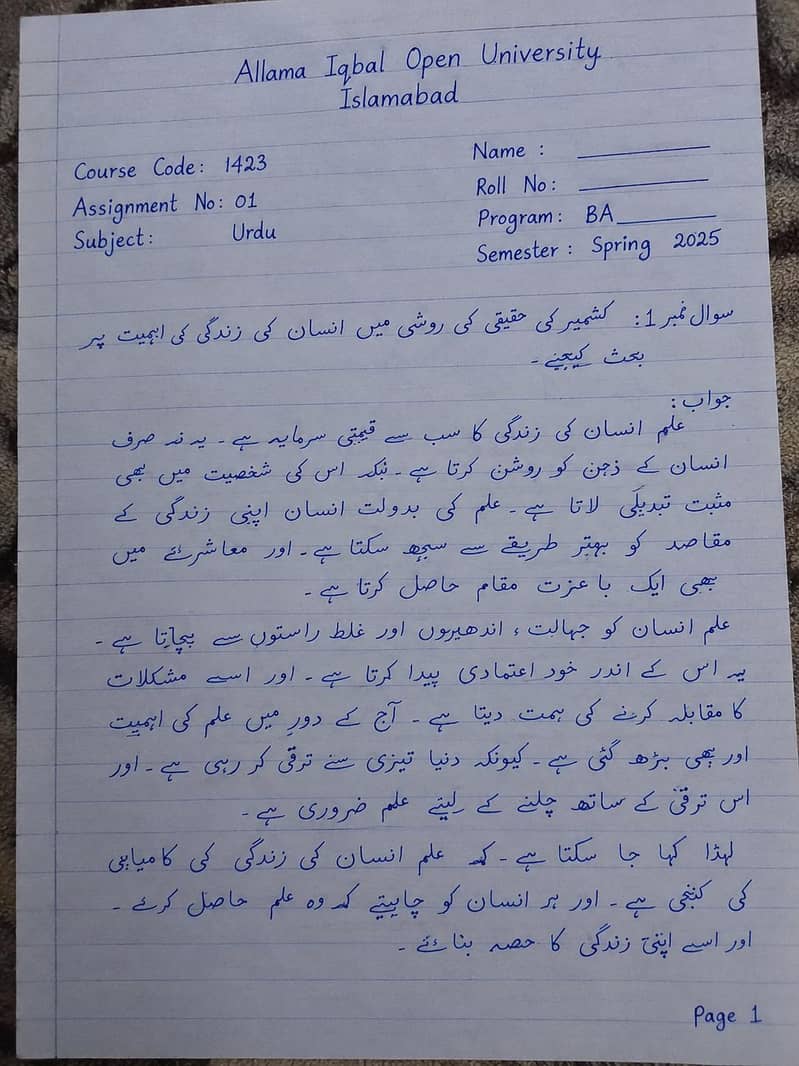 Allama Iqbal Open University
Islamabad
Course Code: 1423
Assignment No: 01
Subject: Urdu
Name :
Roll No:
Program: BA
Semester: Spring 2025
سوال نمبر 1: کشمیر کی حقیقی کی روشی میں انسان کی زندگی کی اہمیت پر
بحث کیجئے۔
جواب:
علم انسان کی زندگی کا سب سے قیمتی سرمایہ ہے۔ یہ نہ صرف
انسان کے ذہن کو روشن کرتا ہے۔ بلکہ اس کی شخصیت میں بھی
مثبت تبدیلی لاتا ہے۔ علم کی بدولت انسان اپنی زندگی کے
مقاصد کو بہتر طریقے سے سمجھ سکتا ہے۔ اور معاشرئے میں
بھی ایک باعزت مقام حاصل کرتا ہے۔
علم انسان کو جہالت، اندھیروں اور غلط راستوں سے بچاتا ہے۔
یہ اس کے اندر خود اعتمادی پیدا کرتا ہے۔ اور اسے مشکلات
کا مقابلہ کرنے کی ہمت دیتا ہے۔ آج کے دور میں علم کی اہمیت
اور بھی بڑھ گئی ہے۔ کیونکہ دنیا تیزی سے ترقی کر رہی ہے۔ اور
اس ترقی کے ساتھ چلنے کے لیئے علم ضروری ہے۔
لہذا کہا جا سکتا ہے۔ کہ علم انسان کی زندگی کی کامیابی
کی کنجی ہے۔ اور ہر انسان کو چاہیئے کہ وہ علم حاصل کرئے۔
اور اسے اپنی زندگی کا حصہ بنائے۔
Page 1